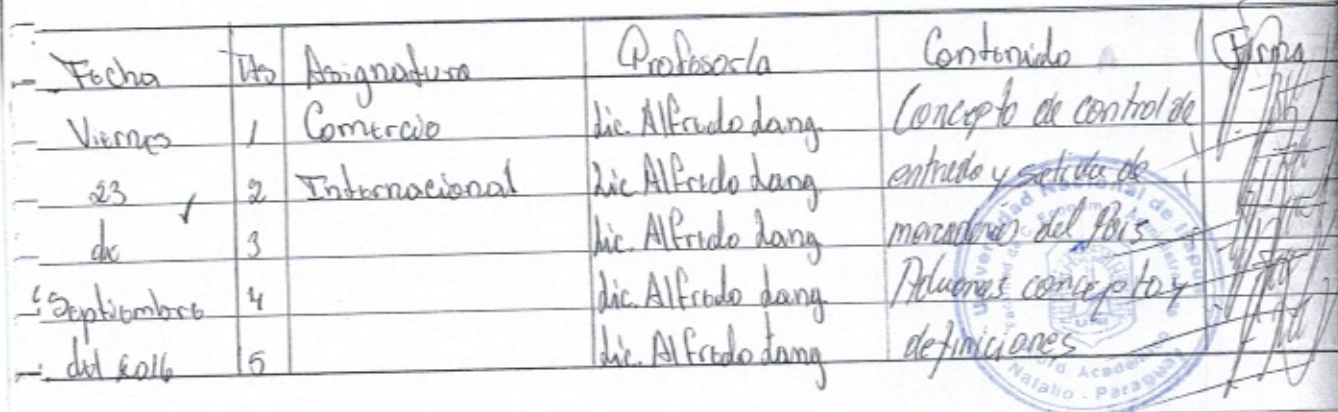 Fecha Hs Asignatura Profesor/a Contenido Firma
Viernes 1 Comercio Lic. Alfredo Lang. Concepto de control de
23 2 Internacional Lic Alfredo Lang entrada y salida de
de 3 Lic. Alfredo Lang mercaderias del Pais
Septiembre 4 Lic. Alfredo Lang. Aduanas concepto y
del 2016 5 Lic. Alfredo Lang definiciones
Universidad Nacional de Itapúa
Natalio - Paraguay